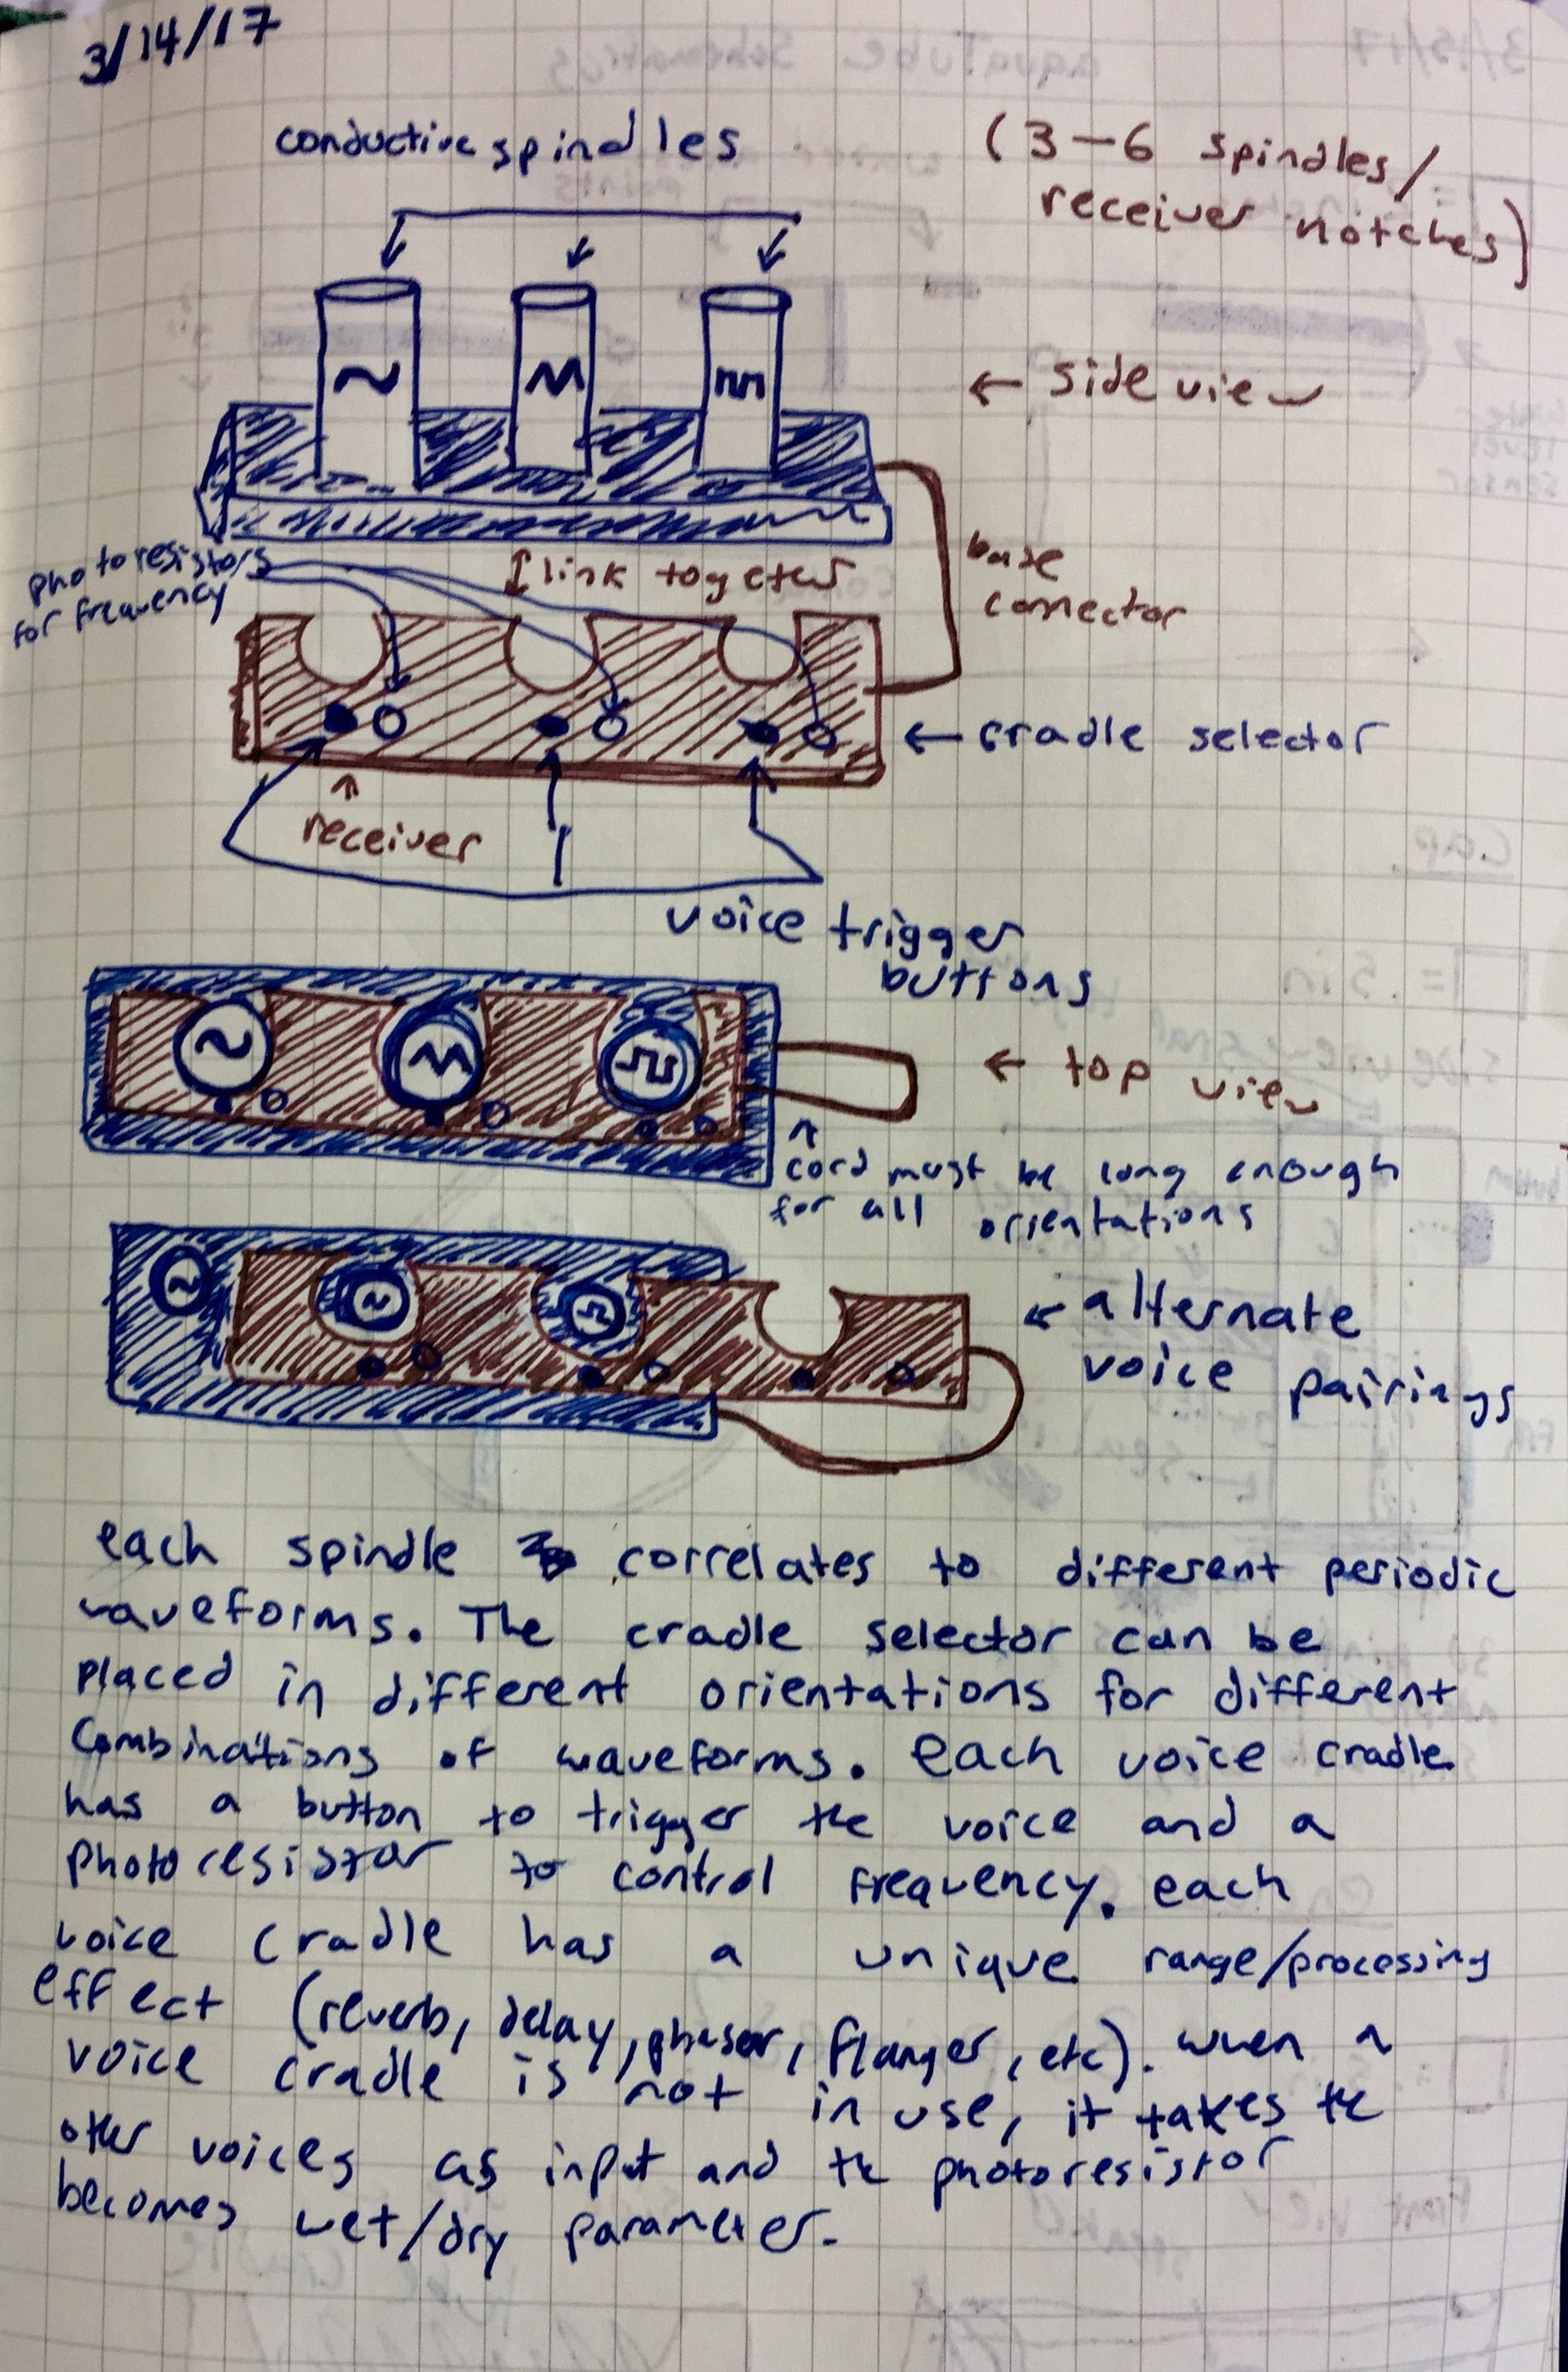 3/14/17
conductive spindles
(3-6 spindles/
receiver notches)
← side view
photoresistors
for frequency
↕ link togeter
base
connector
← cradle selector
receiver
voice trigger
buttons
← top view
cord must be long enough
for all orientations
← alternate
voice pairings
each spindle correlates to different periodic
waveforms. The cradle selector can be
placed in different orientations for different
combinations of waveforms. each voice cradle
has a button to trigger the voice and a
photoresistor to control frequency. each
voice cradle has a unique range/processing
effect (reverb, delay, phaser, flanger, etc). when a
voice cradle is not in use, it takes the
other voices as input and the photoresistor
becomes wet/dry parameter.